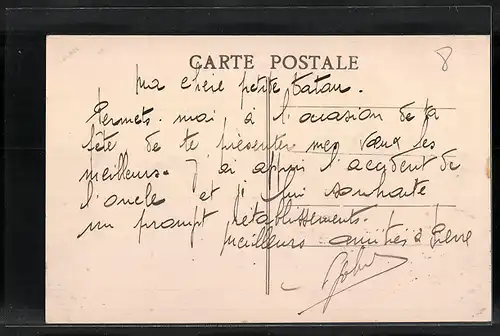 8
CARTE POSTALE
Ma chère petite tatan.
Permets-moi, à l'occasion de ta
fête de te présenter mes vœux les
meilleurs. J'ai appris l'accident de
l'oncle et lui souhaite
un prompt rétablissements.
Meilleurs amitiés à Pierre